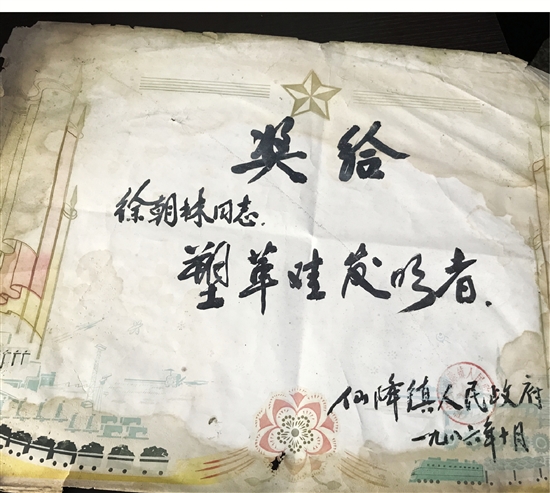 奖给
徐朝林同志.
塑革鞋发明者.
仙降镇人民政府
一九八六年十月